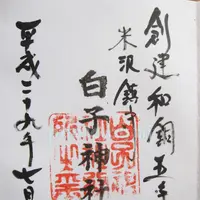 創建和銅五年
米沢鎮守
白子神社
平成二十九年七月